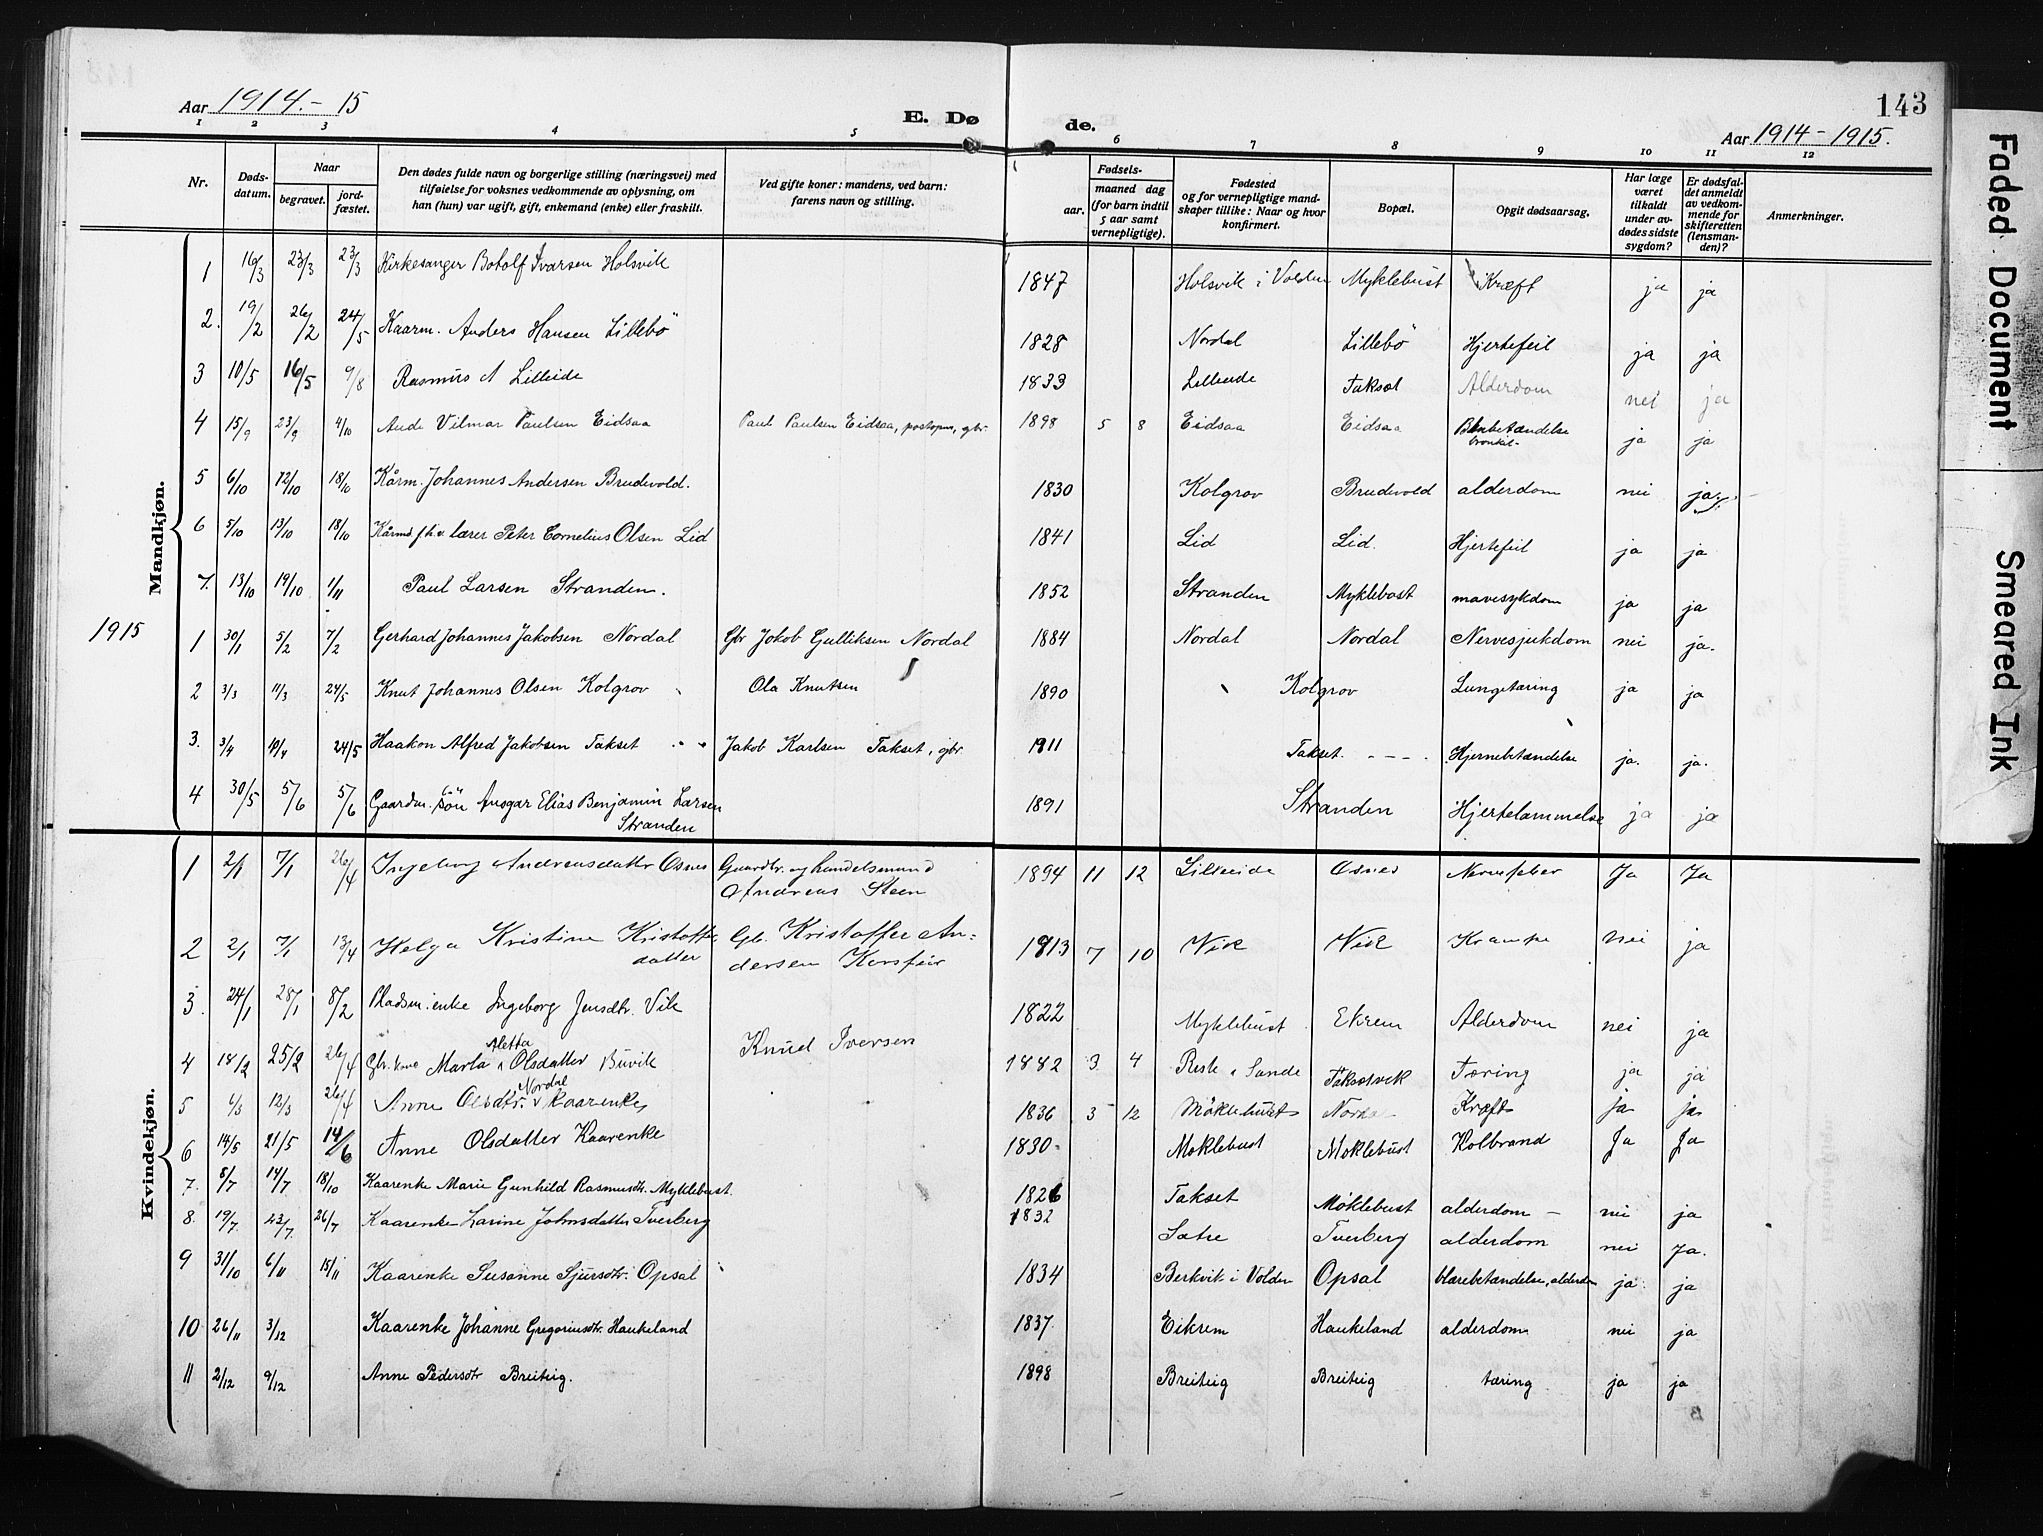 Aar 1914.-15
E. Dø
de.
143
Aar 1914-1915.
1 2 3 4 5 6 7 8 9 10 11 12
Nr.
Døds-
datum.
Naar
begravet.
jord-
fæstet.
Den dødes fulde navn og borgerlige stilling (næringsvei) med
tilføielse for voksnes vedkommende av oplysning, om
han (hun) var ugift, gift, enkemand (enke) eller fraskilt.
Ved gifte koner: mandens, ved barn:
farens navn og stilling.
Fødsels-
aar.
maaned dag
(for barn indtil
5 aar samt
vernepligtige).
Fødested
og for vernepligtige mand-
skaper tillike: Naar og hvor
konfirmert.
Bopæl.
Opgit dødsaarsag.
Har læge
været
tilkaldt
under av-
dødes sidste
sygdom?
Er dødsfal-
det anmeldt
av vedkom-
mende for
skifteretten
(lensman-
den)?
Anmerkninger.
Mandkjøn.
1 16/3 23/3 23/3 Kirkesanger Botolf Ivarsen Holsvik 1847 Holsvik i Volden Myklebust Kræft ja ja
2. 19/2 26/2 24/5 Kaarm. Anders Hansen Lillebö 1828 Nordal Lillebö Hjertefeil ja ja
3 10/5 16/5 9/8 Rasmus A Lilleide 1833 Lilleide Taksæt Alderdom nei ja
4 15/9 23/9 4/10 Aude Vilmar Paulsen Eidsaa Paul Paulsen Eidsaa, postopn, gbr. 1898 5 8 Eidsaa Eidsaa ja ja
5 6/10 12/10 18/10 Kårm. Johannes Andersen Brudevold. 1830 Kolgrov Brudevold alderdom nei ja.
6 5/10 13/10 18/10 Kårmd f.h.v. lærer Peter Cornelius Olsen Lid 1841 Lid Lid. Hjertefeil ja ja
7. 13/10 19/10 1/11 Paul Larsen Stranden. 1852 Stranden Myklebost mavesykdom ja ja
1915
1 30/1 5/2 7/2 Gerhard Johannes Jakobsen Nordal Gbr Jokob Gulliksen Nordal 1884 Nordal Nordal Nervesjukdom nei ja.
2 3/3 11/3 24/5 Knut Johannes Olsen Kolgrov Ola Knutsen 1890 Kolgrov Lungetæring ja ja
3. 3/4 10/4 24/5 Haakon Alfred Jakobsen Takset Jakob Karlsen Takset, gbr. 1911 Takset. - - - - Hjernebetændelse ja. ja.
4 30/5 5/6 5/6 Gaardm. sön Ansgar Elias Benjamin Larsen
Stranden 1891 Stranden Hjertelammelse ja ja
Kvindekjøn.
1 2/1 7/1 26/4 Ingeborg Andreasdatter Osnes Gaardbr. og handelsmand
Andreas Steen 1894 11 12 Lilleeide Osnes Ja Ja
2 2/1 7/1 13/4 Helga Kristine Kristoffer
datter Gb. Kristoffer An-
dersen 1913 7 10 Vik Vik Krampe Nei ja
3. 24/1 28/1 8/2 Pladsm. enke Ingeborg Jensdtr. Vik 1822 Myklebust Ekrem Alderdom nei ja
4 18/2 25/2 26/4 Gbr. kone Marta Aletta Olsdatter Buvik Knud Iversen 1882 3 4 Sande Taksetvik Tæring ja ja
5 6/3 12/3 26/4 Anne Olsdtr. Nordal Kaarenke 1836 3 12 Møklebust Nordal Kræft ja ja
6 14/5 21/5 14/6 Anne Olsdatter Kaarenke 1830 Møklebust Møklebust Kolbrand Ja Ja
7. 8/7 14/7 18/10 Kaarenke Marie Gunhild Rasmusdtr. Myklebust. 1826 Takset Møklebust alderdom - nei ja
8. 19/7 23/7. 26/7 Kaarenke Larine Johnsdatter Tverberg 1832 Sætre Tverberg alderdom nei Ja.
9 31/10 6/11 15/11 Kaarenke Susanne Sjursdtr. Opsal 1834 Berkvik i Volden Opsal blærebetændelse, alderdom ja ja
10 26/11 3/12 Kaarenke Johanne Gregoriusdtr. Haukeland 1837 Eikrem Haukeland alderdom nei ja
11 2/12 9/12 Anne Pedersdtr Breiteig. 1898 Breiteig Breiteig tæring ja ja
Faded Document
Smeared Ink